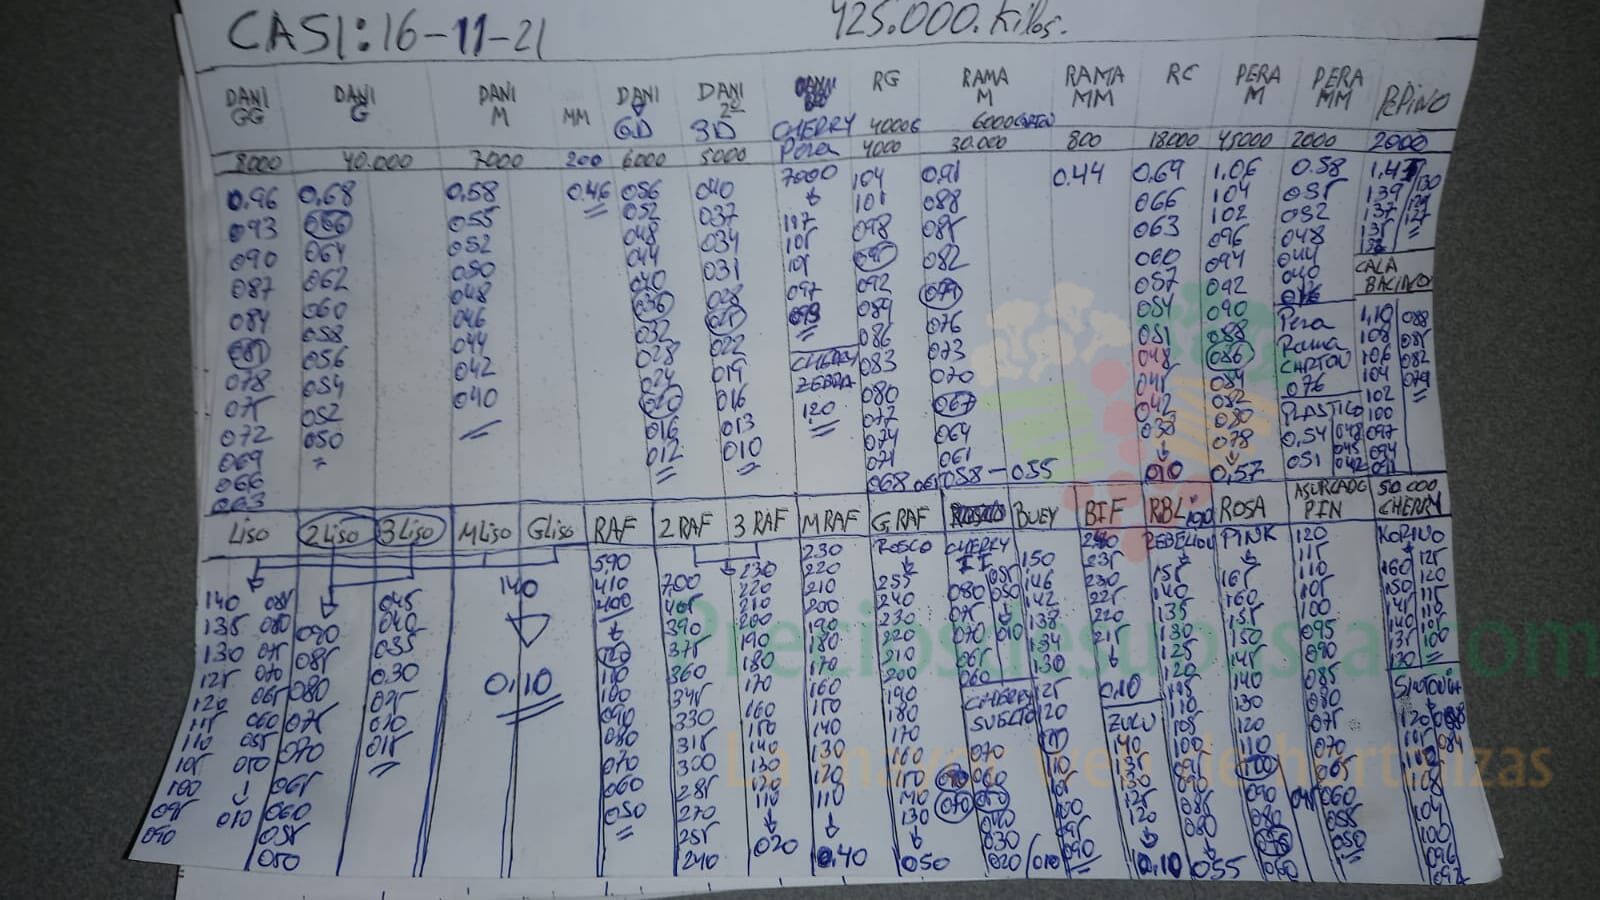 CASI: 16-11-21
425.000. Kilos.
DANI GG DANI G DANI M MM DANI GD DANI 2º 3D CHERRY Pera RG RAMA M RAMA MM RC PERA M PERA MM PEPINO
4000G 6000
8000 40.000 7000 200 6000 5000 7000 4000 30.000 800 18000 45000 2000 2000
0.96 0,68 0,58 0.46 056 040 104 0.91 0.44 0.69 1.06 0.58
093 066 055 052 037 101 088 066 104 055 139 130
090 064 052 048 034 117 098 085 063 102 052 137
087 062 050 044 031 105 095 082 060 096 048 135
084 060 048 040 028 101 092 079 057 094 044
081 058 046 036 025 097 089 076 054 092 040
078 056 044 032 022 093 086 073 051 090
075 054 042 028 019 083 070 048 088
072 052 040 024 016 080 067 045 086
069 050 020 013 077 064 042 084
066 016 010 074 061 038 082
063 012 071 080
068 061 058 - 055 010 078
0,57
CHERRY ZEBRA
120
CALABACINO
1,10 088
108 085
106 082
104 079
102
100
097
094
091
Pera Rama CARTON
076
PLASTICO
0,54 048
051 045
042
LISO 2 LISO 3 LISO M LISO G LISO RAF 2 RAF 3 RAF M RAF G RAF BUEY BIF RBL ROSA ASURCADO PIN 50.000 CHERRY
140 085
135 080
130 075
125 070
120 065
115 060
110 055
105 050
100 010
095
090
090
085
080
075
070
065
060
055
050
045
040
035
0.30
025
020
015
140
0,10
590
410
400
120
110
100
090
080
070
060
050
700
405
390
375
360
345
330
315
300
285
270
255
240
230
220
210
200
190
180
170
160
150
140
130
120
110
020
230
220
210
200
190
180
170
160
150
140
130
120
110
0.40
ROSCO
255
240
230
220
210
200
190
180
170
160
150
140
130
050
CHERRY
080 050
075
070 010
065
060
CHERRY SUELTO
070
060
050
040
030
020 / 010
150
146
142
138
134
130
125
120
110
105
100
095
090
240
235
230
225
220
215
0,10
ZULU
140
135
130
125
120
0.10
REBELION
155
140
135
130
125
120
115
110
105
100
095
090
085
080
055
PINK
165
160
155
150
145
140
130
120
110
100
090
080
120
115
110
105
100
095
090
085
080
075
070
065
045 060
055
050
KORINO
160 125
150 120
145 115
140 105
135 100
130
120 088
115 084
112
108
104
100
096
092
Preciosdesubasta.com
La mayor web de hortalizas